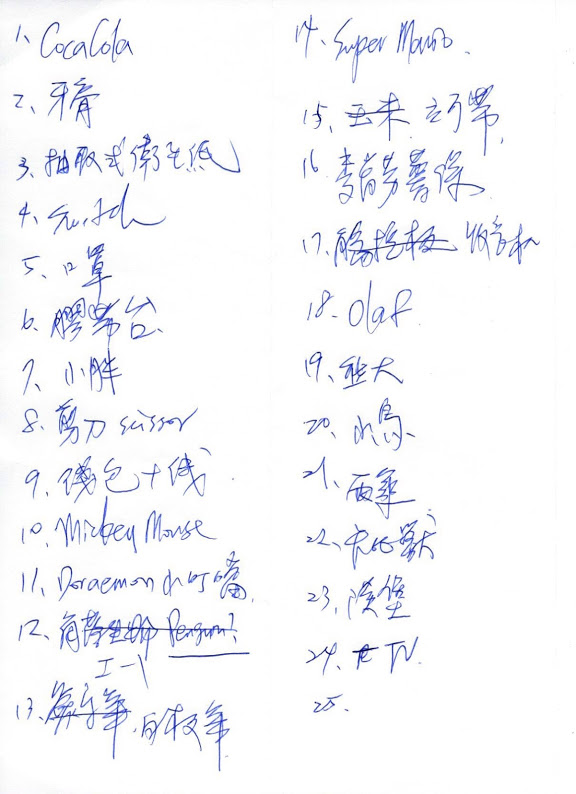 1、CocaCola
2、牙膏
3、抽取式衛生紙
4、switch
5、口罩
6、膠帶台
7、小胖
8、剪刀 scissor
9、錢包+錢
10、Mickey Mouse
11、Doraemon 小叮噹
12、 Penguin?
13、 白板筆
14、Super Mario.
15、玉米 立可帶
16、麥當勞薯條
17、 收音機
18、Olaf
19、熊大
20、小鳥
21、雨傘
22、卡比獸
23、漢堡
24、TV.
25.